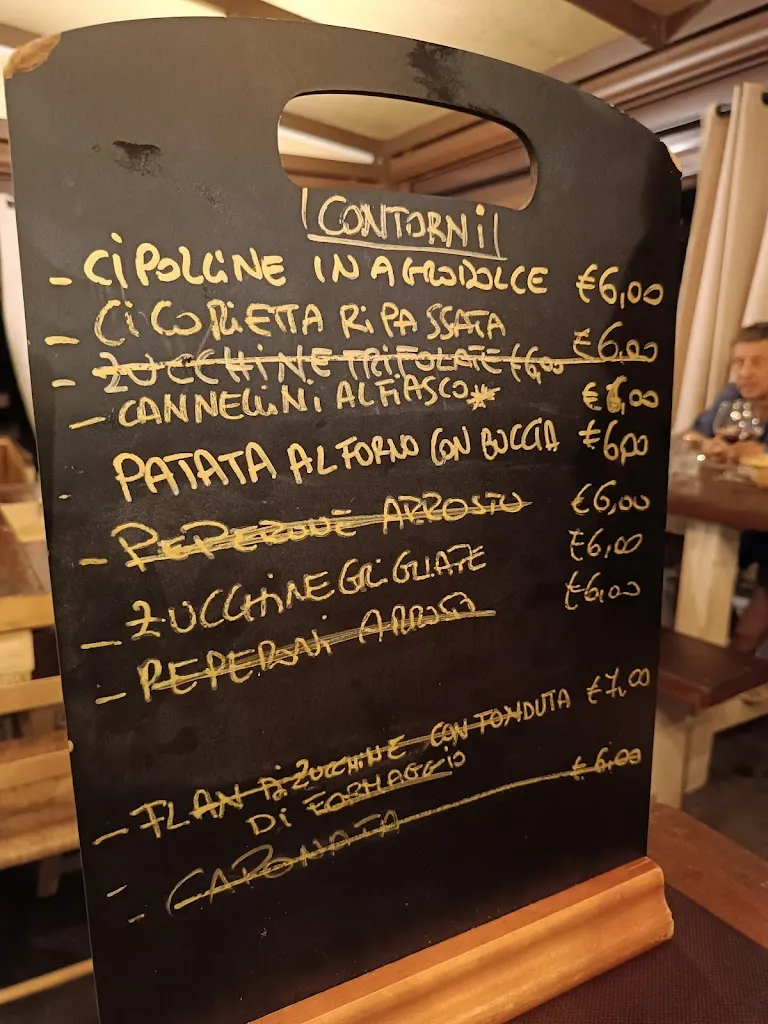 CONTORNI
- CIPOLLINE IN AGRODOLCE €6,00
- CICORIETTA RIPASSATA €6,00
- ZUCCHINE TRIFOLATE €6,00
- CANNELLINI AL FIASCO* € 6,00
- PATATA AL FORNO CON BUCCIA €6,00
- PEPERONE ARROSTO €6,00
- ZUCCHINE GRIGLIATE €6,00
- PEPERONI ARROSTO €6,00
- FLAN DI ZUCCHINE CON FONDUTA €7,00
DI FORMAGGIO
- CAPONATA € 6,00